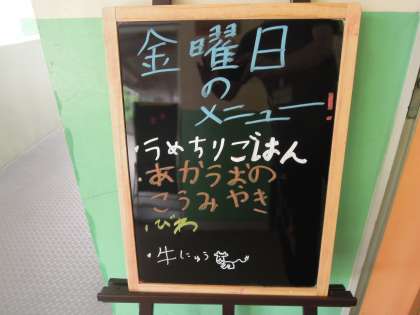 金曜日
の
メニュー
・うめちりごはん
・あかうおの
こうみやき
・びわ
・牛にゅう